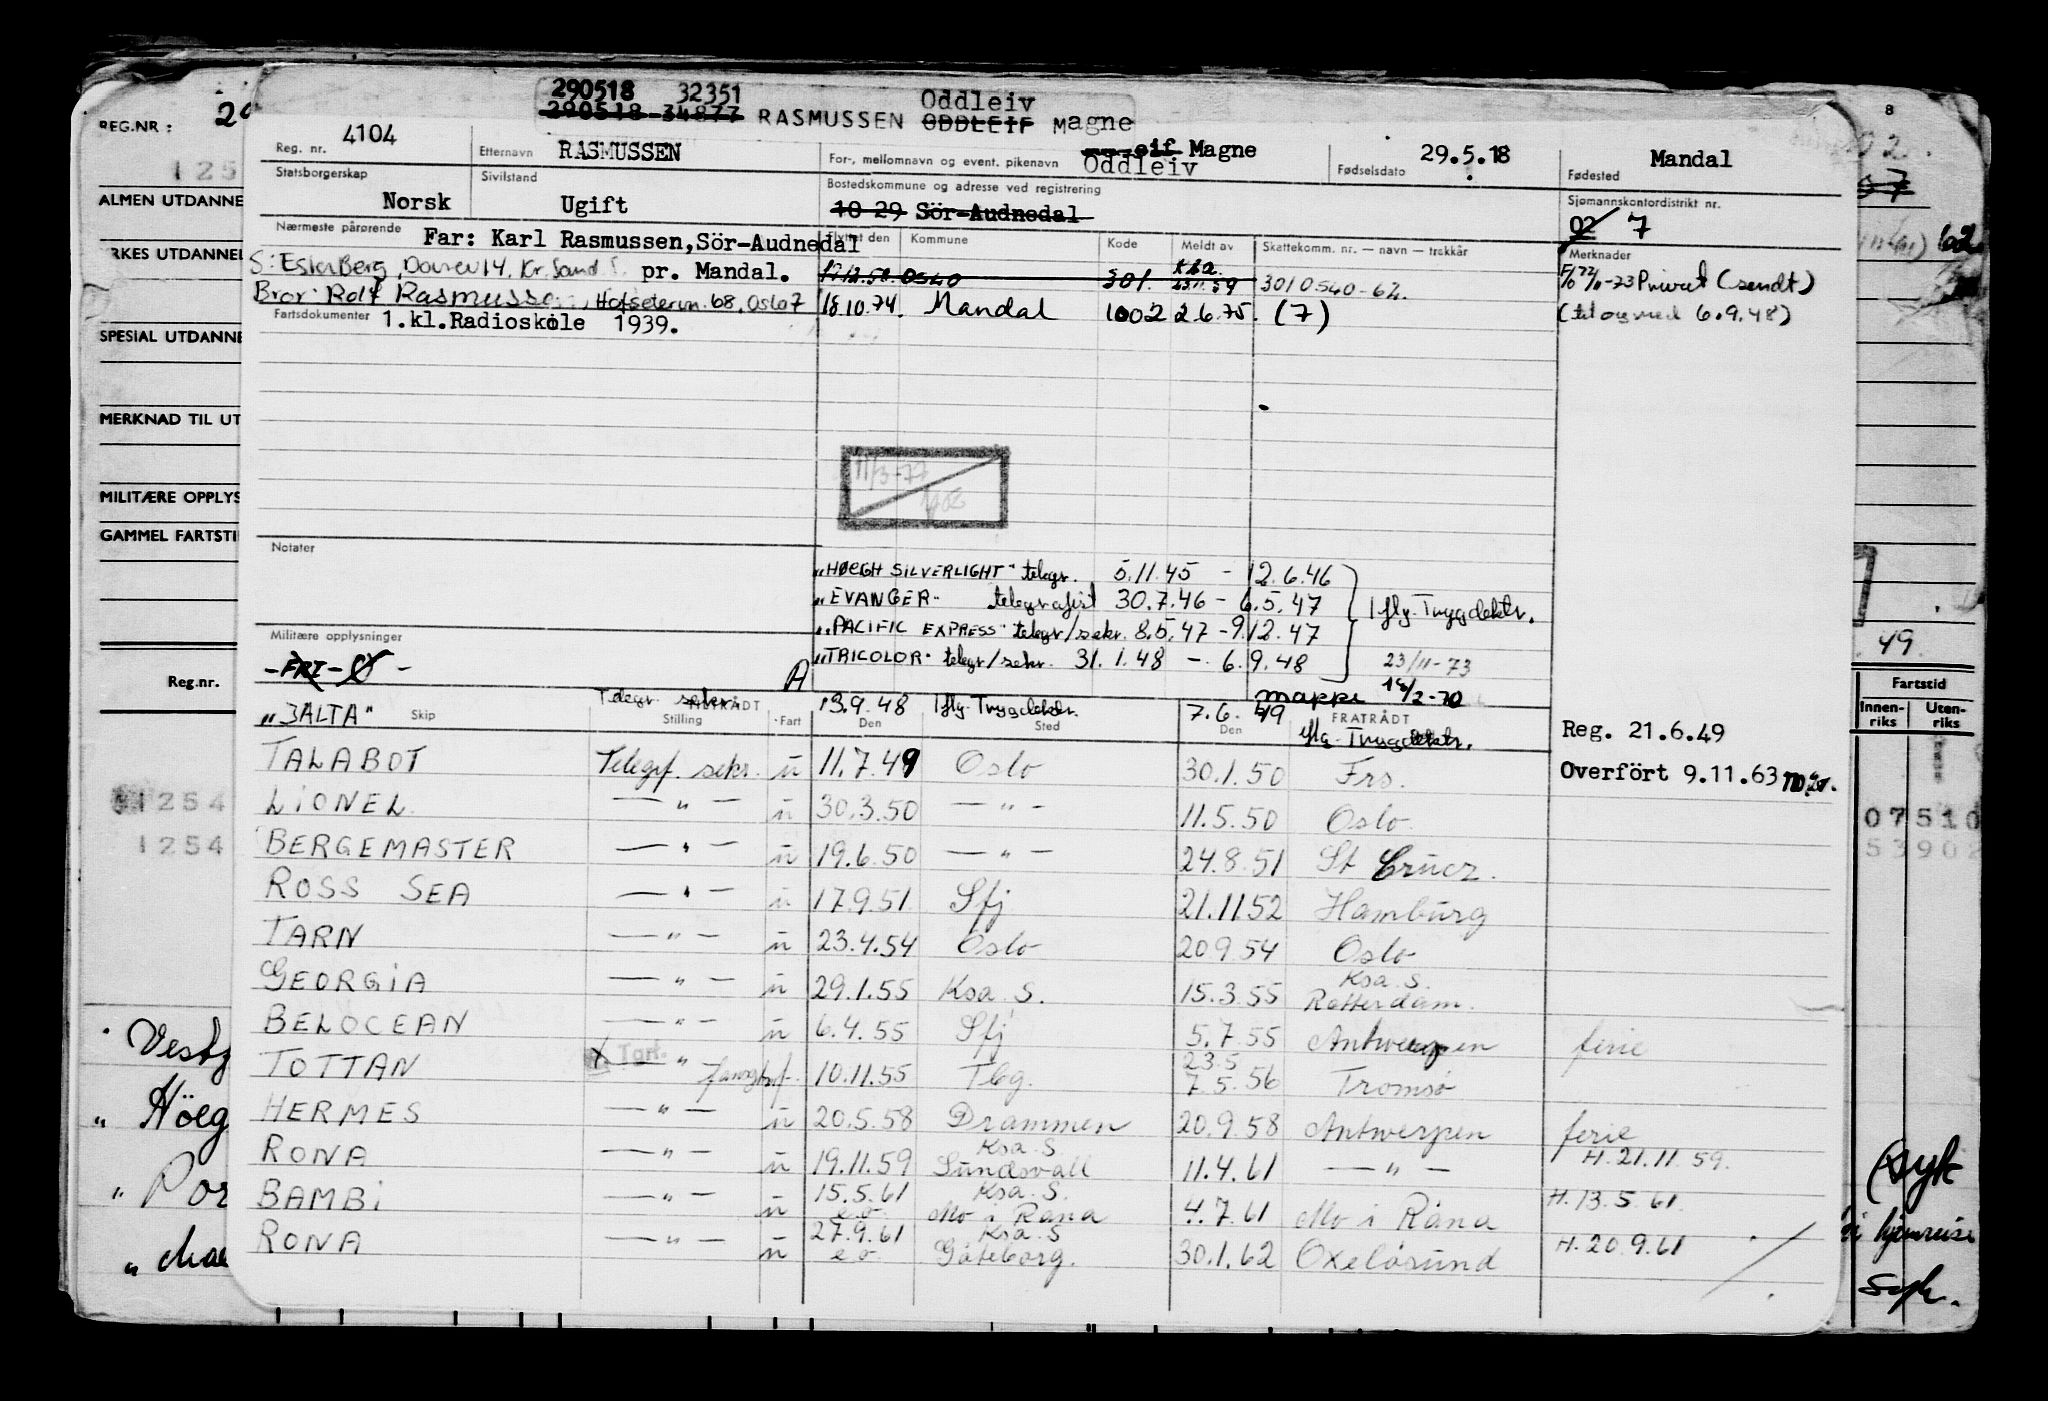 290518 32351 Oddleiv
290518-34877 RASMUSSEN ODDLEIF Magne
Reg. nr. 4104 Etternavn RASMUSSEN For-, mellomnavn og event. pikenavn eif Magne Oddleiv Fødselsdato 29.5.18 Fødested Mandal
Statsborgerskap Norsk Sivilstand Ugift Bostedskommune og adresse ved registrering 10 29 Sör-Audnedal Sjømannskontordistrikt nr. 02 7
Nærmeste pårørende Far: Karl Rasmussen, Sör-Audnedal Flyttet den Kommune Kode Meldt av Skattekomm. nr. — navn — trekkår Merknader
S: Ester Berg, 14, Kr. Sand S. pr. Mandal. 17.12.58 0540 301. Ksa. 23.11.59 3010540-64. 22/11-73 Privat (sendt)
Bror: Rolf Rasmussen, Hofsetervn. 68, Oslo 7 18.10.74. Mandal 1002 2.6.75. (7) (til og med 6.9.48)
Fartsdokumenter 1.kl.Radioskole 1939.
11/3-77
Notater
"HØEGH SILVERLIGHT" telegr. 5.11.45 - 12.6.46
"EVANGER" telegrafist 30.7.46 - 6.5.47 iflg. Trygdektr.
"PACIFIC EXPRESS" telegr/sekr. 8.5.47 - 9.12.47
"TRICOLOR" telegr/sekr. 31.1.48 - 6.9.48 23/11-73
Militære opplysninger
-FRI- A mappe 18/2-70
"JALTA" Skip Telegr. sekr. TILTRÅDT Stilling Fart 13.9.48 Den iflg. Trygdektr. Sted 7.6.49 Den FRATRÅDT iflg. Trygdektr. Reg. 21.6.49
TALABOT Telegrf. sekr. u 11.7.49 Oslo 30.1.50 Frs. Overfört 9.11.63
LIONEL — " — u 30.3.50 — " — 11.5.50 Oslo.
BERGEMASTER — " — u 19.6.50 — " — 24.8.51 St Crucz.
ROSS SEA — " — u 17.9.51 Sfj 21.11.52 Hamburg
TARN — " — u 23.4.54 Oslo 20.9.54 Oslo
GEORGIA — " — u 29.1.55 Ksa. S. 15.3.55 Ksa. S. Rotterdam.
BELOCEAN — " — u 6.4.55 Sfj 5.7.55 Antwerpen ferie
TOTTAN — " — fangstf. 10.11.55 Tbg. 23.5 7.5.56 Tromsø
HERMES — " — u 20.5.58 Drammen 20.9.58 Antwerpen ferie
RONA — " — u 19.11.59 Ksa. S. Sundsvall 11.4.61 — " — H. 21.11.59.
BAMBI — " — u 15.5.61 e.o. Ksa. S. Mo i Rana 4.7.61 Mo i Rana H. 13.5.61
RONA — " — u 27.9.61 e.o. Ksa. S Göteborg. 30.1.62 Oxelösund H. 20.9.61
REG.NR:
125
ALMEN UTDANNE
RKES UTDANNEL
SPESIAL UTDANNE
MERKNAD TIL UT
MILITÆRE OPPLYS
GAMMEL FARTSTI
Reg.nr.
1254
1254
" Höeg
" Por
8
49
Fartstid
Innen-riks Uten-riks
07510
53902
syk
hjemreise
syk.